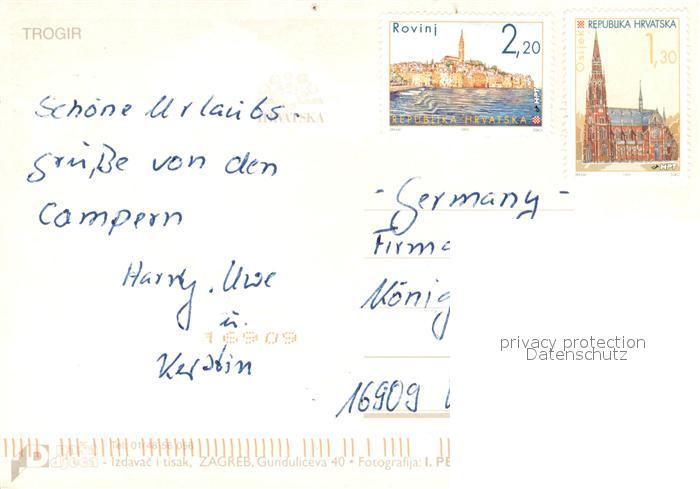 TROGIR
Rovinj
2,20
REPUBLIKA HRVATSKA
REPUBLIKA HRVATSKA
Osijek
1,30
HPT
HRVATSKA
Schöne Urlaubs-
grüße von den
Campern
Hardy, Uwe
u.
Kerstin
16909
- Germany -
Firma
König
16909
privacy protection
Datenschutz
- Izdavač i tisak, ZAGREB, Gundulićeva 40 • Fotografija: I. PE